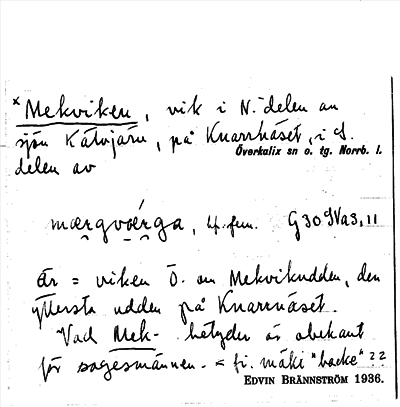 * Mekviken, vik i N.-delen av
sjön Kätvjärv, på Knarrnäset, i S.
Överkalix sn o. tg. Norrb. l.
delen av
mærgvǫérga, sf. fem. G30SVa3,11
Är = viken Ö. om Mekvikudden, den
yttersta udden på Knarrnäset.
Vad Mek- betyder är obekant
för sagesmännen. < fi. mäki "backe" ??
EDVIN BRÄNNSTRÖM 1936.